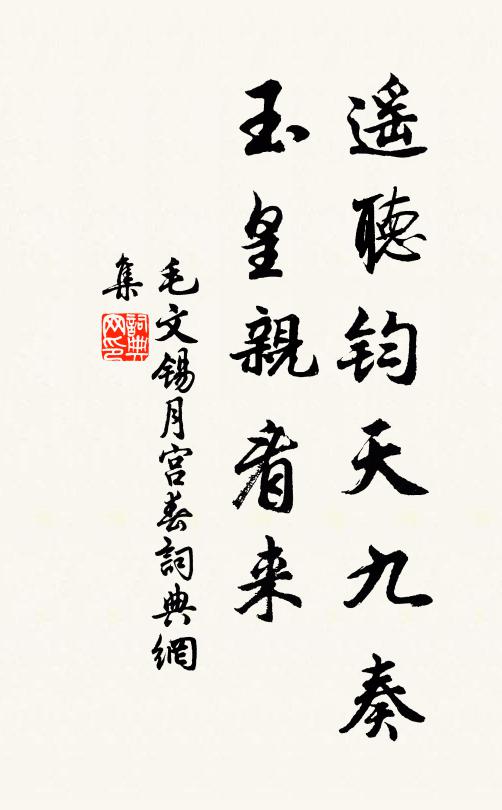 遥聽鈞天九奏
玉皇親看来
毛文錫月宮春詞典網
集
詞典
网印